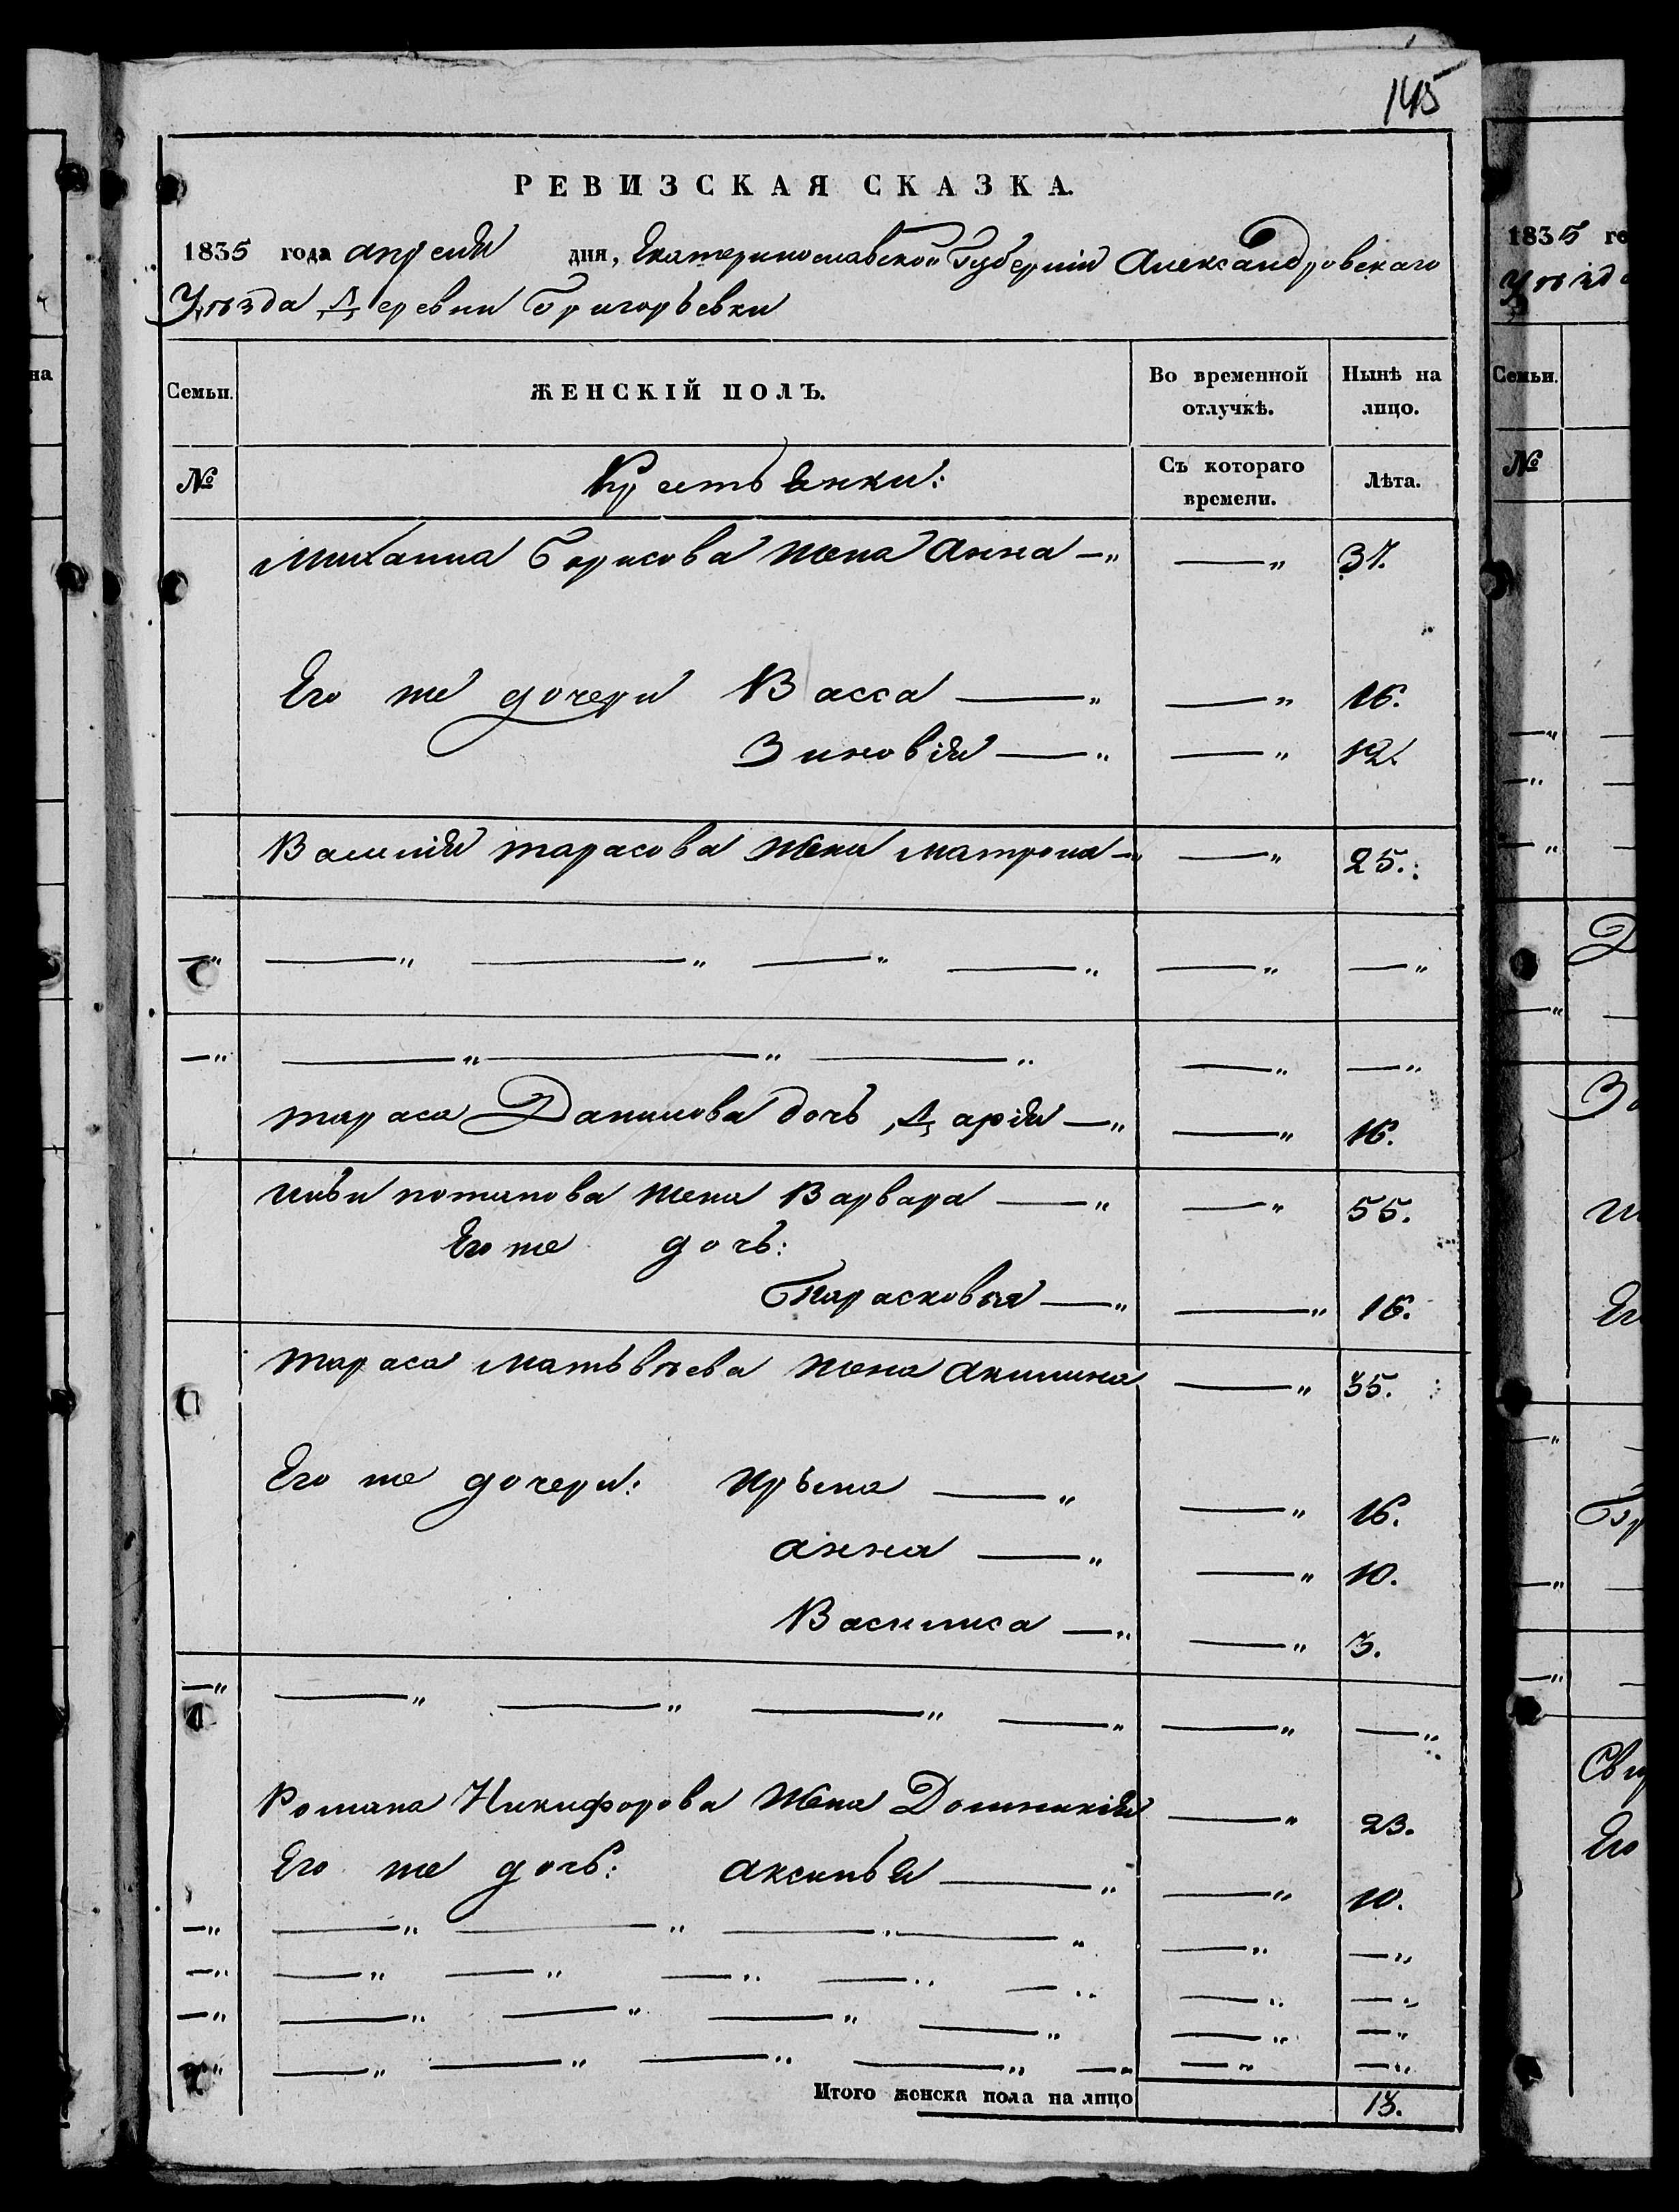 145
РЕВИЗСКАЯ СКАЗКА.
1835 года апреля дня, Екатеринославской Губерніи Александровскаго
Уѣзда Деревни Григорьевки
Семьи. ЖЕНСКІЙ ПОЛЪ. Во временной отлучкѣ. Нынѣ на лицо.
№ Крестьянки: Съ котораго времени. Лѣта.
Михаила Борисова жена Анна —„ —„ 37.
Его же дочери Васса —„ —„ 16.
Зиновія —„ —„ 12.
Василія тарасова жена матрона —„ —„ 25.
—„ —„ —„ —„ —„ —„ —„
—„ —„ —„ —„ —„ —„
тараса Данилова дочь Дарія —„ —„ 16.
потапова жена Варвара —„ —„ 55.
Его же дочь:
Парасковья —„ —„ 16.
тараса матьвѣева жена акилина —„ 35.
Его же дочери: Ирына —„ —„ 16.
анна —„ —„ 10.
Василиса —„ —„ 3.
—„ —„ —„ —„ —„ —„ —„
Романа Никифорова жена Домникія —„ 23.
Его же дочь: аксинья —„ —„ 10.
—„ —„ —„ —„ —„ —„ —„
—„ —„ —„ —„ —„ —„ —„ —„
—„ —„ —„ —„ —„ —„ —„
—„ —„ —„ —„ —„ —„ —„ —„
Итого женска пола на лицо 13.